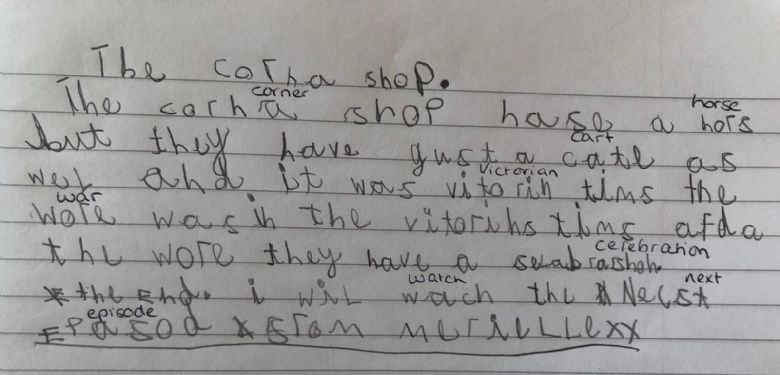 The corna shop.
corner horse
The corna shop hase a hors
cart
but they have gust a cate as
victorian
wel and it was vitorin tims the
war
wore was in the vitorins tims afda
celebration
the wore they have a selabrashon
watch next
the End. i wil wach the Necst
episode
Epasod x from merielLexx